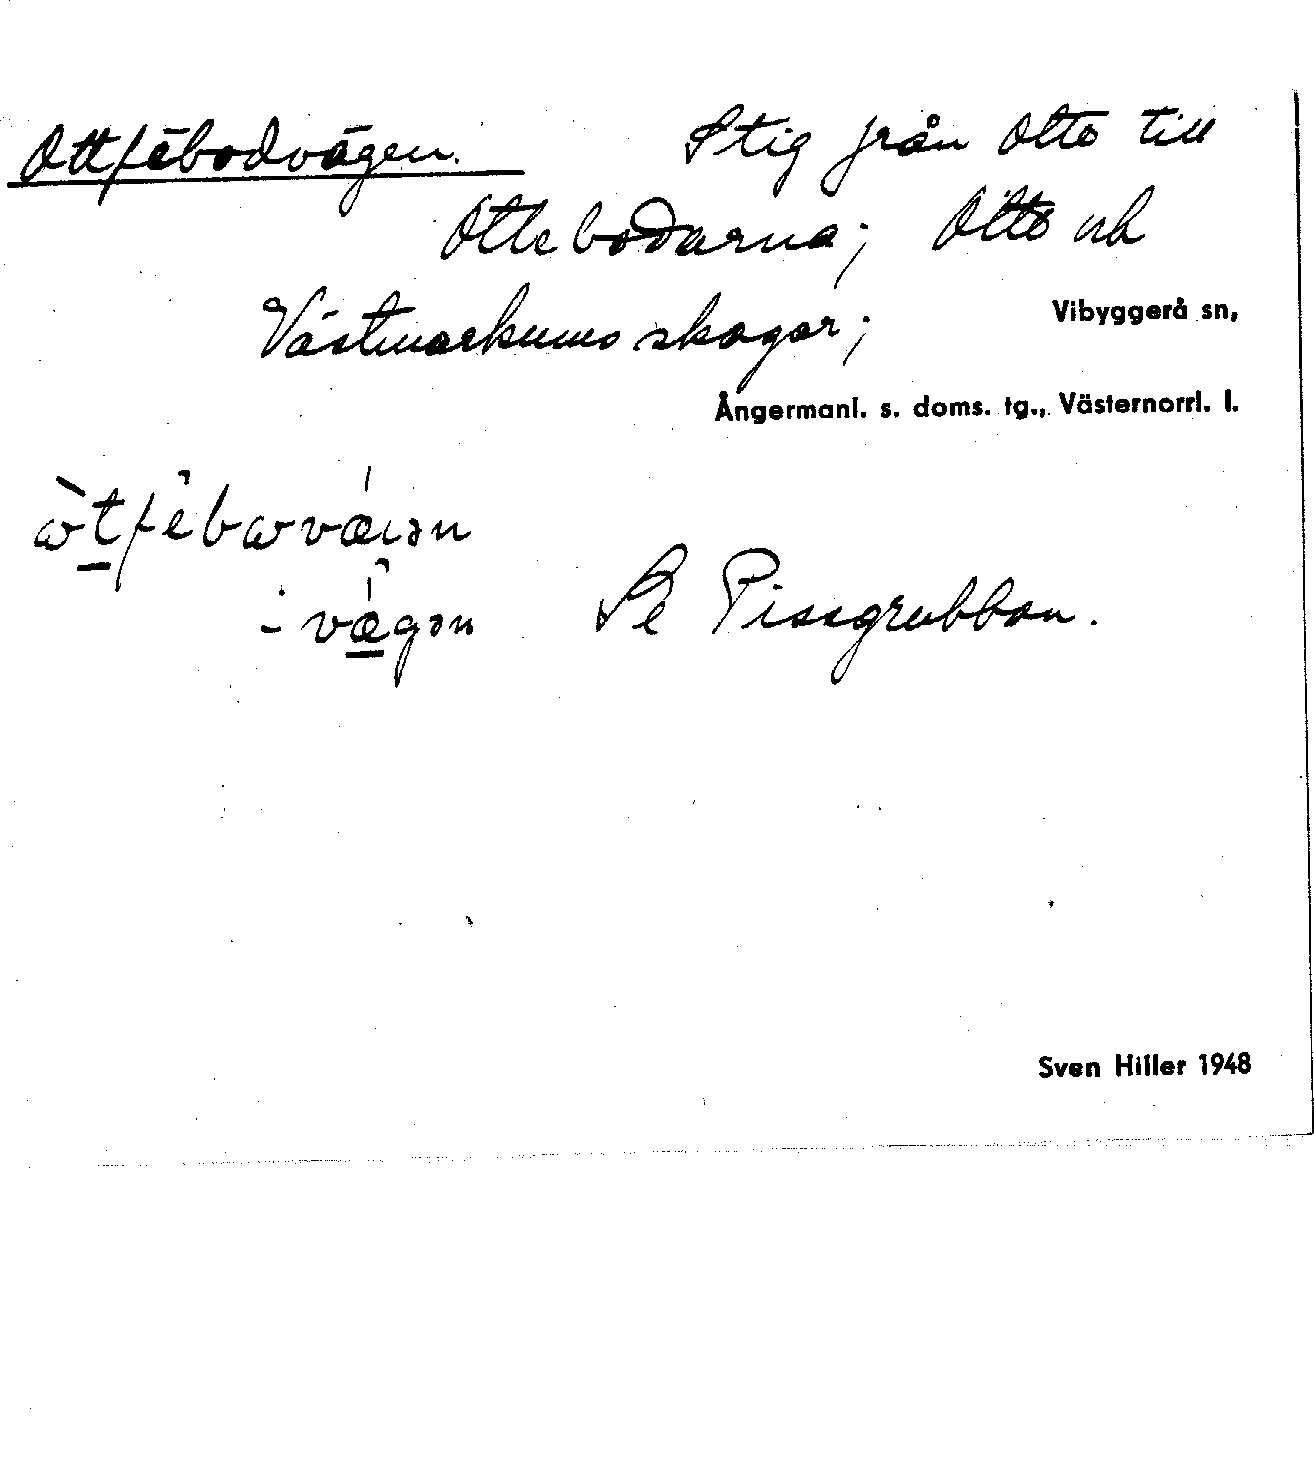 Ottfébodvägen. Stig från Otto till
Ottebodarna; Otto och
Västmarkums skogar; Vibyggerå sn,
Ångermanl. s. doms. tg., Västernorrl. l.
Se Pissgrubban.
Sven Hiller 1948